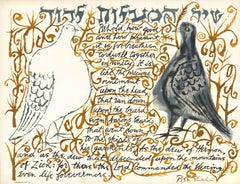 שיר המעלות לדוד
Behold, how good
and how pleasant
it is for brethren
to dwell together
in unity! It is
like the precious
ointment
upon the head
that ran down
upon the beard
even Aaron's beard
that went down
to the skirts of
his garments As the dew of Hermon
and as the dew that descended upon the mountains
of Zion: for there the Lord commanded the blessing
even life forevermore
Ben Shahn